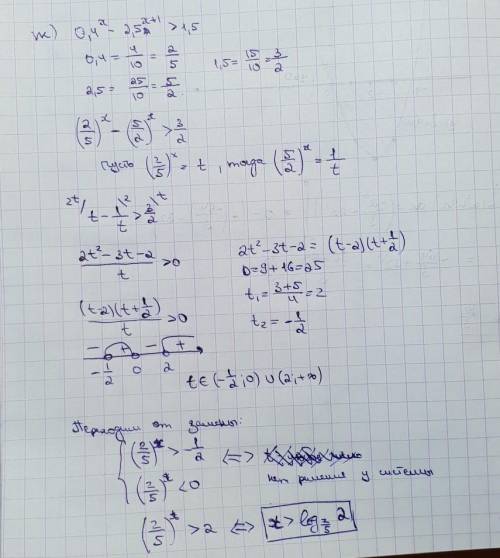 ж) 0,4^x - 2,5^{x+1} > 1,5
0,4 = 4/10 = 2/5    1,5 = 15/10 = 3/2
2,5 = 25/10 = 5/2
(2/5)^x - (5/2)^x > 3/2
Пусть (2/5)^x = t, тогда (5/2)^x = 1/t
2t/ t - 1\2/t > 3\t/2
(2t² - 3t - 2)/t > 0    2t² - 3t - 2 = (t-2)(t+1/2)
D = 9 + 16 = 25
((t-2)(t+1/2))/t > 0    t₁ = (3+5)/4 = 2
t₂ = -1/2
- + - +
-1/2 0 2
t ∈ (-1/2; 0) ∪ (2; +∞)
Переходим от замены:
(2/5)^x > -1/2 <=>
(2/5)^x < 0    нет решения у системы
(2/5)^x > 2 <=> x > log_{2/5} 2